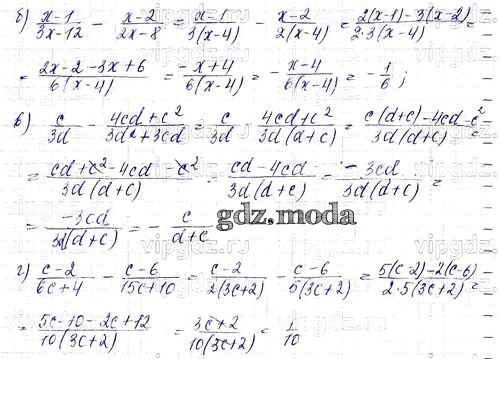 б) (x-1)/(3x-12) - (x-2)/(2x-8) = (x-1)/(3(x-4)) - (x-2)/(2(x-4)) = (2(x-1)-3(x-2))/(2·3(x-4)) =
= (2x-2-3x+6)/(6(x-4)) = (-x+4)/(6(x-4)) = - (x-4)/(6(x-4)) = - 1/6 ;
в) c/3d - (4cd+c²)/(3d²+3cd) = c/3d - (4cd+c²)/(3d(d+c)) = (c(d+c)-4cd-c²)/(3d(d+c)) =
= (cd+c²-4cd-c²)/(3d(d+c)) = (cd-4cd)/(3d(d+c)) = (-3cd)/(3d(d+c)) =
= (-3cd)/(3d(d+c)) = - c/(d+c)
gdz.moda
г) (c-2)/(6c+4) - (c-6)/(15c+10) = (c-2)/(2(3c+2)) - (c-6)/(5(3c+2)) = (5(c-2)-2(c-6))/(2·5(3c+2)) =
= (5c-10-2c+12)/(10(3c+2)) = (3c+2)/(10(3c+2)) = 1/10